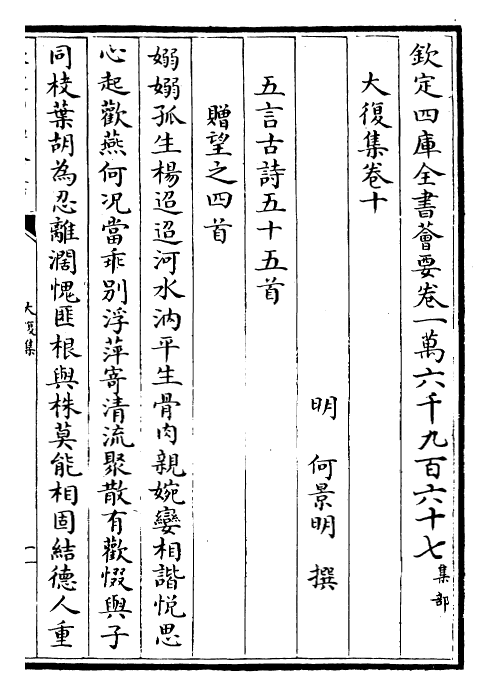 欽定四庫全書薈要卷一萬六千九百六十七集部
大復集卷十
明 何景明 撰
五言古詩五十五首
贈望之四首
嫋嫋孤生楊迢迢河水汭平生骨肉親婉孌相諧悅思
心起歡燕何況當乖別浮萍寄清流聚散有歡惙與子
同枝葉胡為忍離濶愧匪根與株莫能相固結德人重
大復集
一